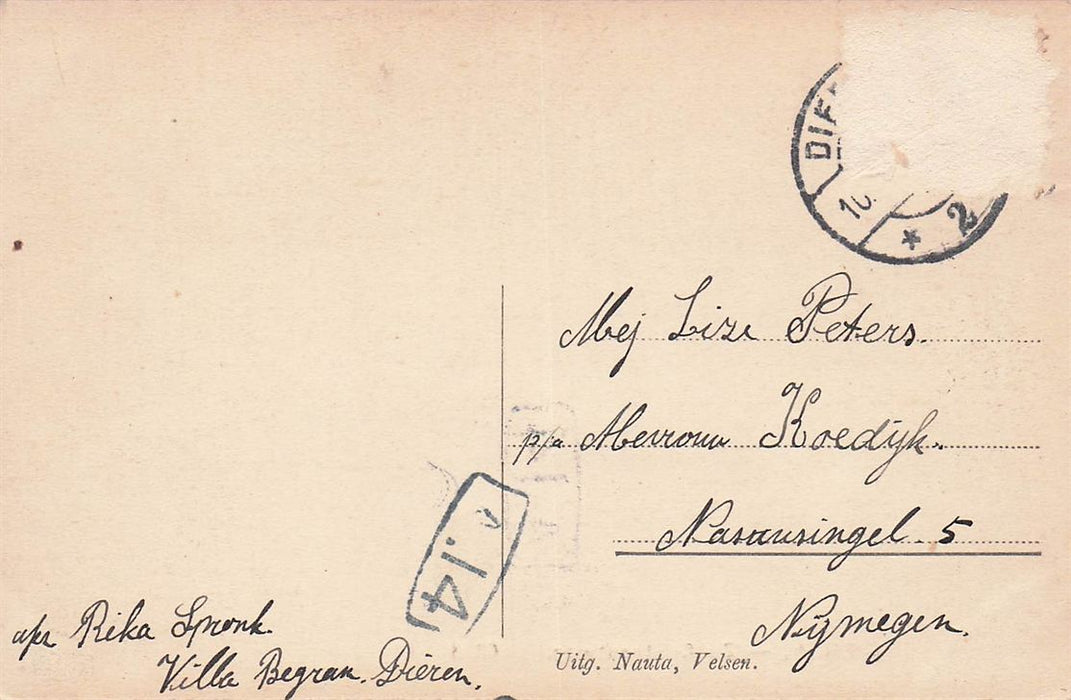 DIE
10
2
Mej Lize Peters.
p/a Mevrouw Koedijk.
Nassausingel 5
Nijmegen.
14
afz Rika Spronk.
Villa Begran. Dieren.
Uitg. Nauta, Velsen.